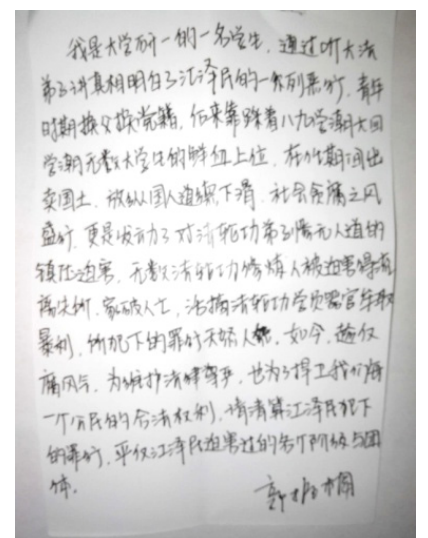 我是大学研一的一名学生，通过听大法
弟子讲真相明白了江泽民的一系列恶行，青年
时期换父换党籍，后来靠踩着八九学潮大回
学潮无数大学生的鲜血上位，在此期间出
卖国土，放纵国人道德下滑，社会贪腐之风
盛行，更是发动了对法轮功弟子惨无人道的
镇压迫害，无数法轮功修炼人被迫害得流
离失所，家破人亡，活摘法轮功学员器官牟取
暴利，所犯下的罪行天怒人怨，如今，趁反
腐风气，为维护法律尊严，也为了捍卫我们每
一个公民的合法权利，请清算江泽民犯下
的罪行，平反江泽民迫害过的各个阶级与团
体。